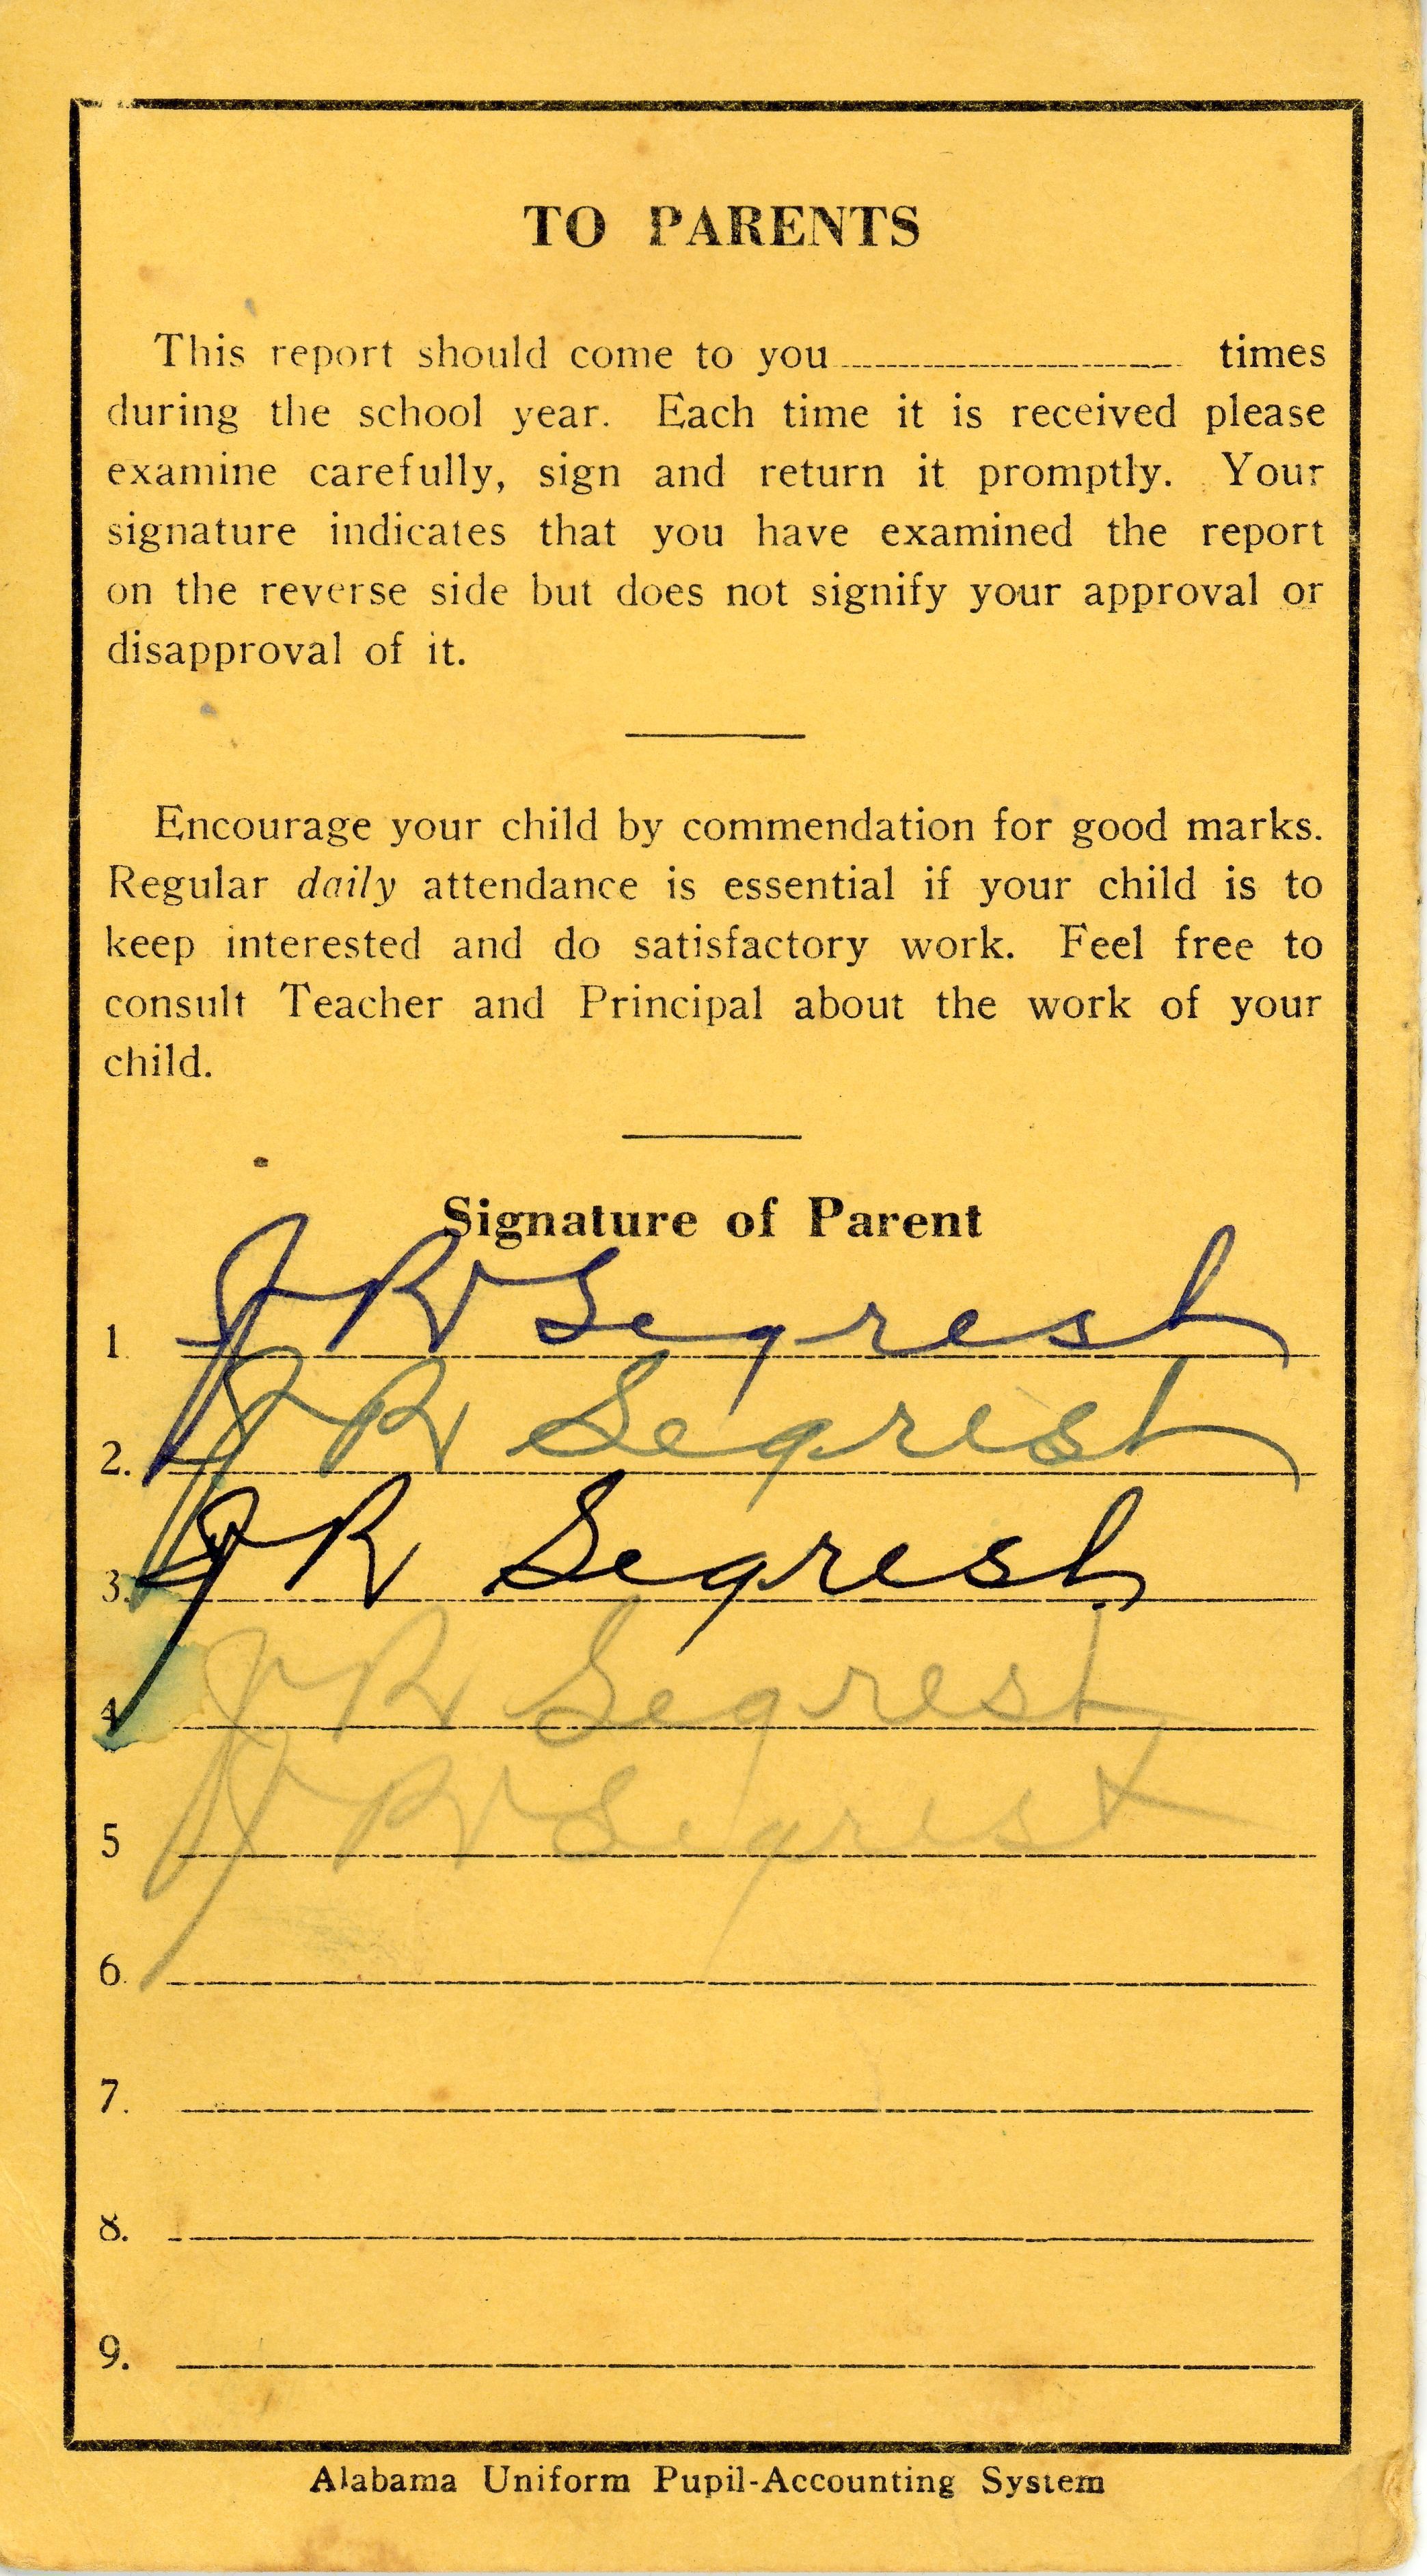 TO PARENTS
This report should come to you ........................ times
during the school year. Each time it is received please
examine carefully, sign and return it promptly. Your
signature indicates that you have examined the report
on the reverse side but does not signify your approval or
disapproval of it.
Encourage your child by commendation for good marks.
Regular daily attendance is essential if your child is to
keep interested and do satisfactory work. Feel free to
consult Teacher and Principal about the work of your
child.
Signature of Parent
1. J R Segrest
2. J R Segrest
3. J R Segrest
4. J R Segrest
5 J R Segrest
6.
7.
8.
9.
Alabama Uniform Pupil-Accounting System